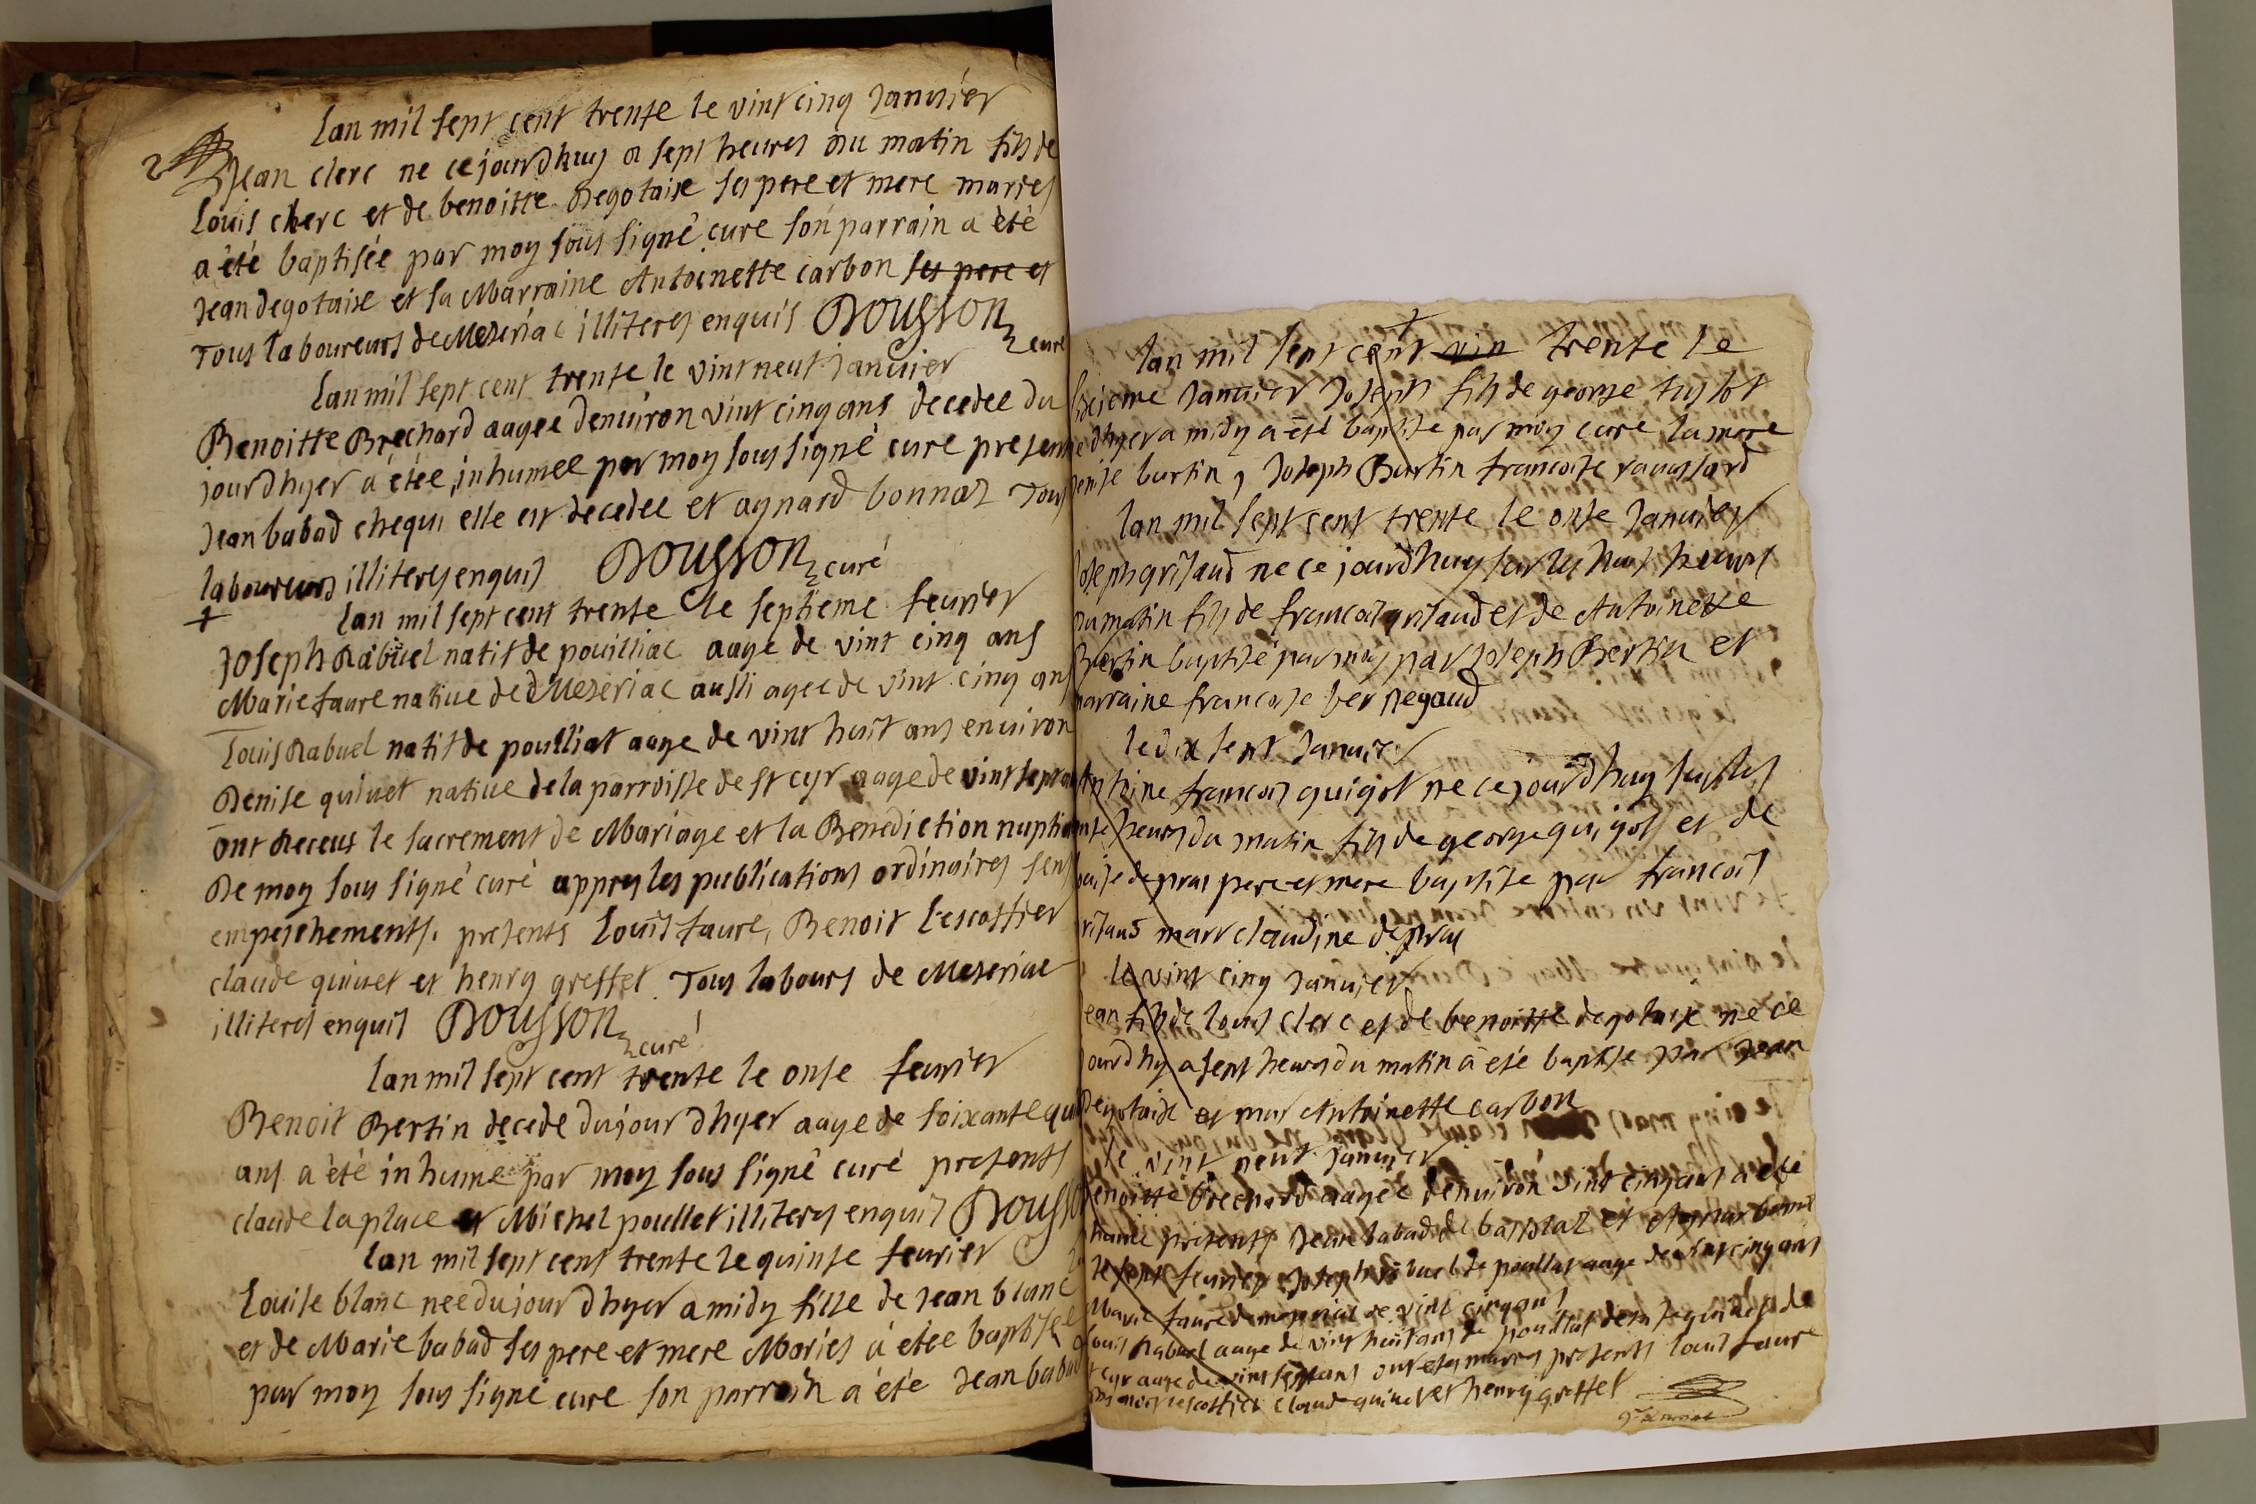 2
lan mil sept cent trente le vint cinq Janvier
Jean clerc ne ce jourdhuy a sept heures du matin fils de
Louis clerc et de benoitte Degotaise ses pere et mere maries
a été baptisée par moy sous signé cure son parrain a été
Jean degotaise et sa Marraine Antoinette carbon ses pere et
Tous laboureurs de Meseriac illiteres enquis Dousson curé
Lan mil sept cent trente le vint neuf Janvier
Benoitte Brechard aagee denviron vint cinq ans decedee du
jourdhyer a étée inhumee par moy sous signé cure presents
Jean babad chequi elle est decedee et aynard bonnaz Tous
laboureurs illiteres enquis Dousson curé
+ lan mil sept cent trente le septieme fevrier
Joseph Rabuel natif de pouilliac aage de vint cinq ans
Marie faure native de Meseriac aussi agee de vint cinq ans
Louis Rabuel natif de poulliat aage de vint huit ans environ
Denise quivet native de la parroisse de st cyr aage de vint sept ans
ont Receus le sacrement de Mariage et la Benediction nuptia
De moy sous signé curé appres les publications ordinaires sens
empeschements. presents Louis faure, Benoit Lescottier
claude quivet et henry greffet Tous labours de Meseriac
illiteres enquis Dousson curé
lan mil sept cent trente le onse fevrier
Benoit Bertin decede dujourdhyer aage de soixante qu
ans a été inhume par moy sous signé curé presents
claude laplace et Michel poullet illiteres enquis Douss
lan mil sept cent trente le quinse fevrier
Louise blanc nee dujourdhyer a midy fille de Jean blanc
et de Marie babad ses pere et mere Mariés a étée baptisée
par moy sous signé cure son parrain a été Jean babad
lan mil sept cent vin trente le
sixieme Janvier Joseph fils de george
dhyer a midy a été baptise par moy cure la mere
denise burtin, Joseph Burtin francoise
lan mil sept cent trente le onse Janvier
Joseph grisaud ne ce jourdhuy sur les huit heures
du matin fils de francois grisaud et de Antoinette
Bertin baptisé par moy par Joseph Bertin et
marraine francoise
le dix sept Janvier
francois guigot ne ce jourdhuy sus les
heures du matin fils de george guigot et de
de pras pere et mere baptise par francois
grisaud marr claudine depras
le vint cinq Janvier
Jean fils de louis clerc et de benoitte degotaise ne ce
jourdhy a sept heures du matin a été baptise par Jean
Degotaise et mar Antoinette carbon
le vint neuf Janvier
benoitte brechard aagée denviron vint cinq ans a été
presents Jean babad de et
le sept fevrier Joseph Rabuel de poulliat aage de vint cinq ans
Marie faure de meseriac de vint cinq ans
louis Rabuel aage de vint huit ans de poulliat denise quivet de
st cyr aage de vint sept ans ont etes maries presents louis faure
lescottier claude quivet et henry greffet